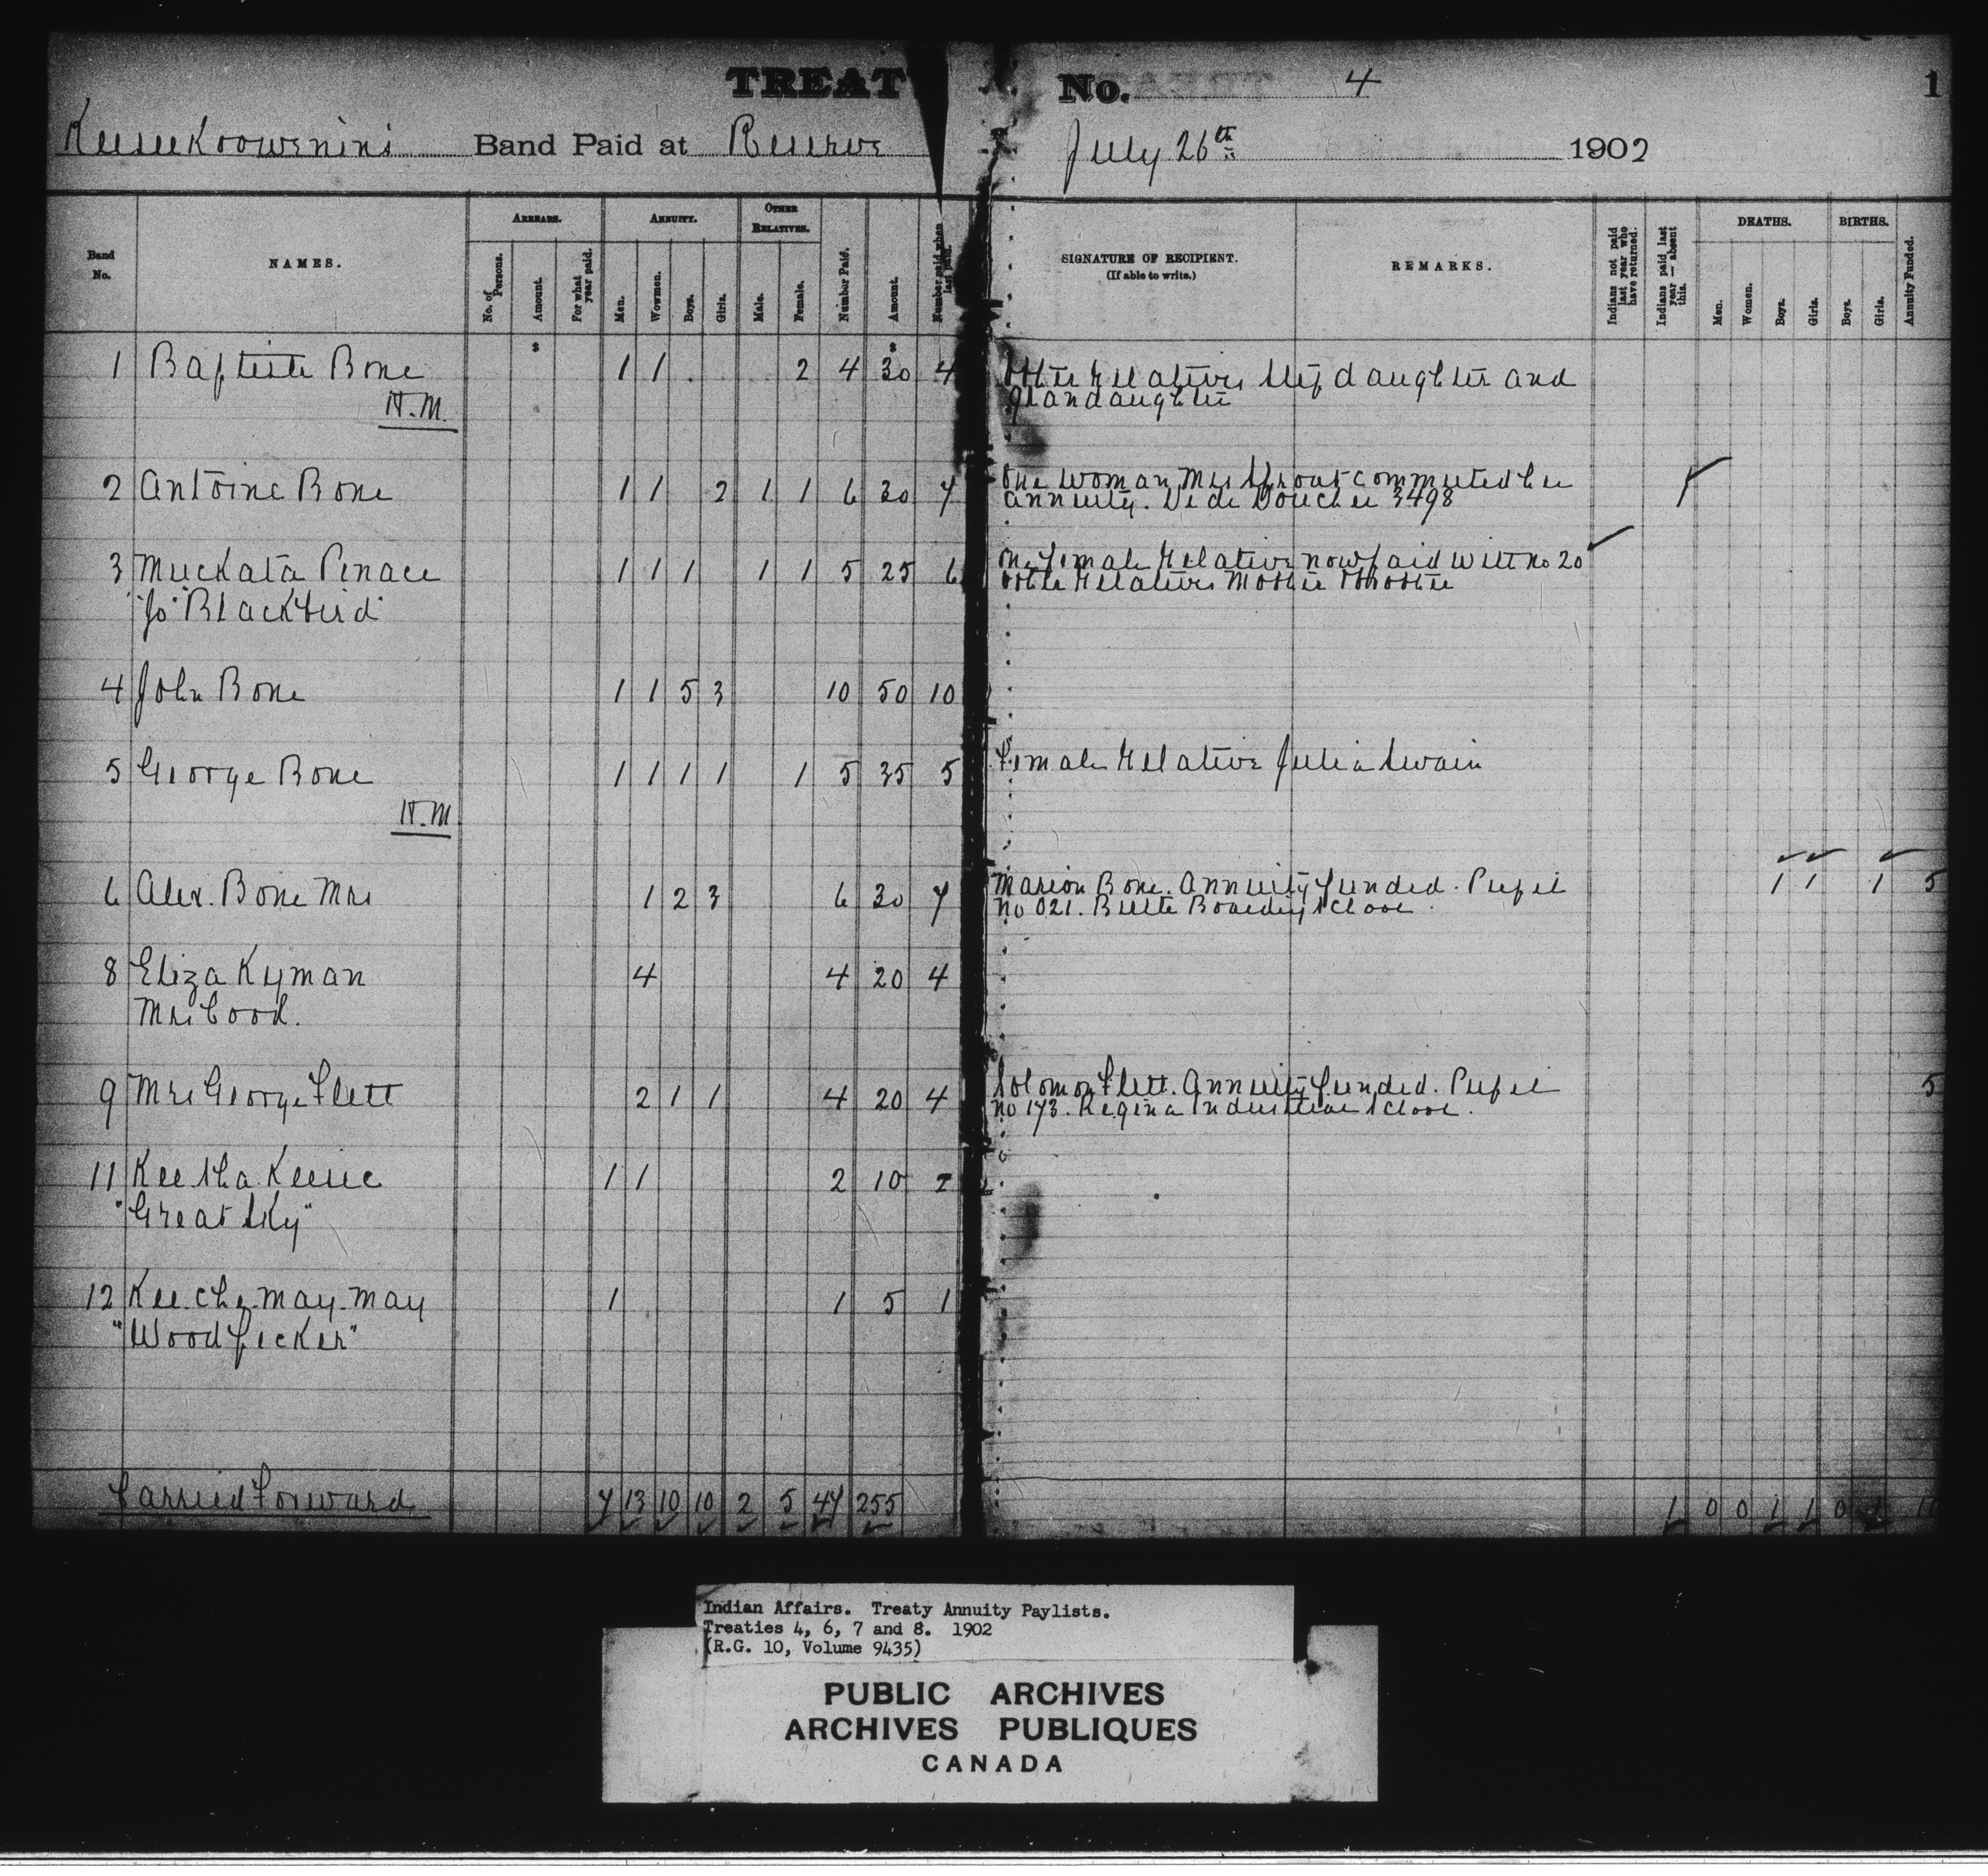 TREATY No. 4 1
Keeseekoowenins Band Paid at Reserve July 26th 1902
Band No. NAMES. ARREARS. ANNUITY. OTHER RELATIVES. Number Paid. Amount. Number paid when last paid. SIGNATURE OF RECIPIENT. (If able to write.) REMARKS. Indians not paid last year who have returned. Indians paid last year — absent this. DEATHS. BIRTHS. Annuity Funded.
No. of Persons. Amount. For what year paid. Men. Wowmen. Boys. Girls. Male. Female. Men. Women. Boys. Girls. Boys. Girls.
$ $
1 Baptiste Bone 1 1 2 4 30 4 Other Relatives Stepdaughter and
H.M. grandaughter
2 Antoine Bone 1 1 2 1 1 6 30 7 One woman Mrs Sprout commuted her
annuity. Vide Voucher 3498
3 Muckata Penace 1 1 1 1 1 5 25 6 One female Relative now paid with no 20
"Jo" Blackbird" Other Relatives Mother & brother
4 John Bone 1 1 5 3 10 50 10
5 George Bone 1 1 1 1 1 5 35 5 Female Relative Julia Swain
H.M.
6 Alex. Bone Mrs 1 2 3 6 30 7 Marion Bone. Annuity funded. Pupil 1 1 1 5
no 021. Birtle Boarding School.
8 Eliza Kyman 4 4 20 4
Mrs Cood.
9 Mrs George Flett 2 1 1 4 20 4 Solomon Flett. Annuity funded. Pupil 5
no 173. Regina Industrial School.
11 Kee sha Keesic 1 1 2 10 2
"Great Sky"
12 Kee.che.may.may 1 1 5 1
"Woodpecker"
Carried Forward 7 13 10 10 2 5 47 255 1 0 0 1 1 0 1 10
Indian Affairs. Treaty Annuity Paylists.
Treaties 4, 6, 7 and 8. 1902
(R.G. 10, Volume 9435)
PUBLIC ARCHIVES
ARCHIVES PUBLIQUES
CANADA